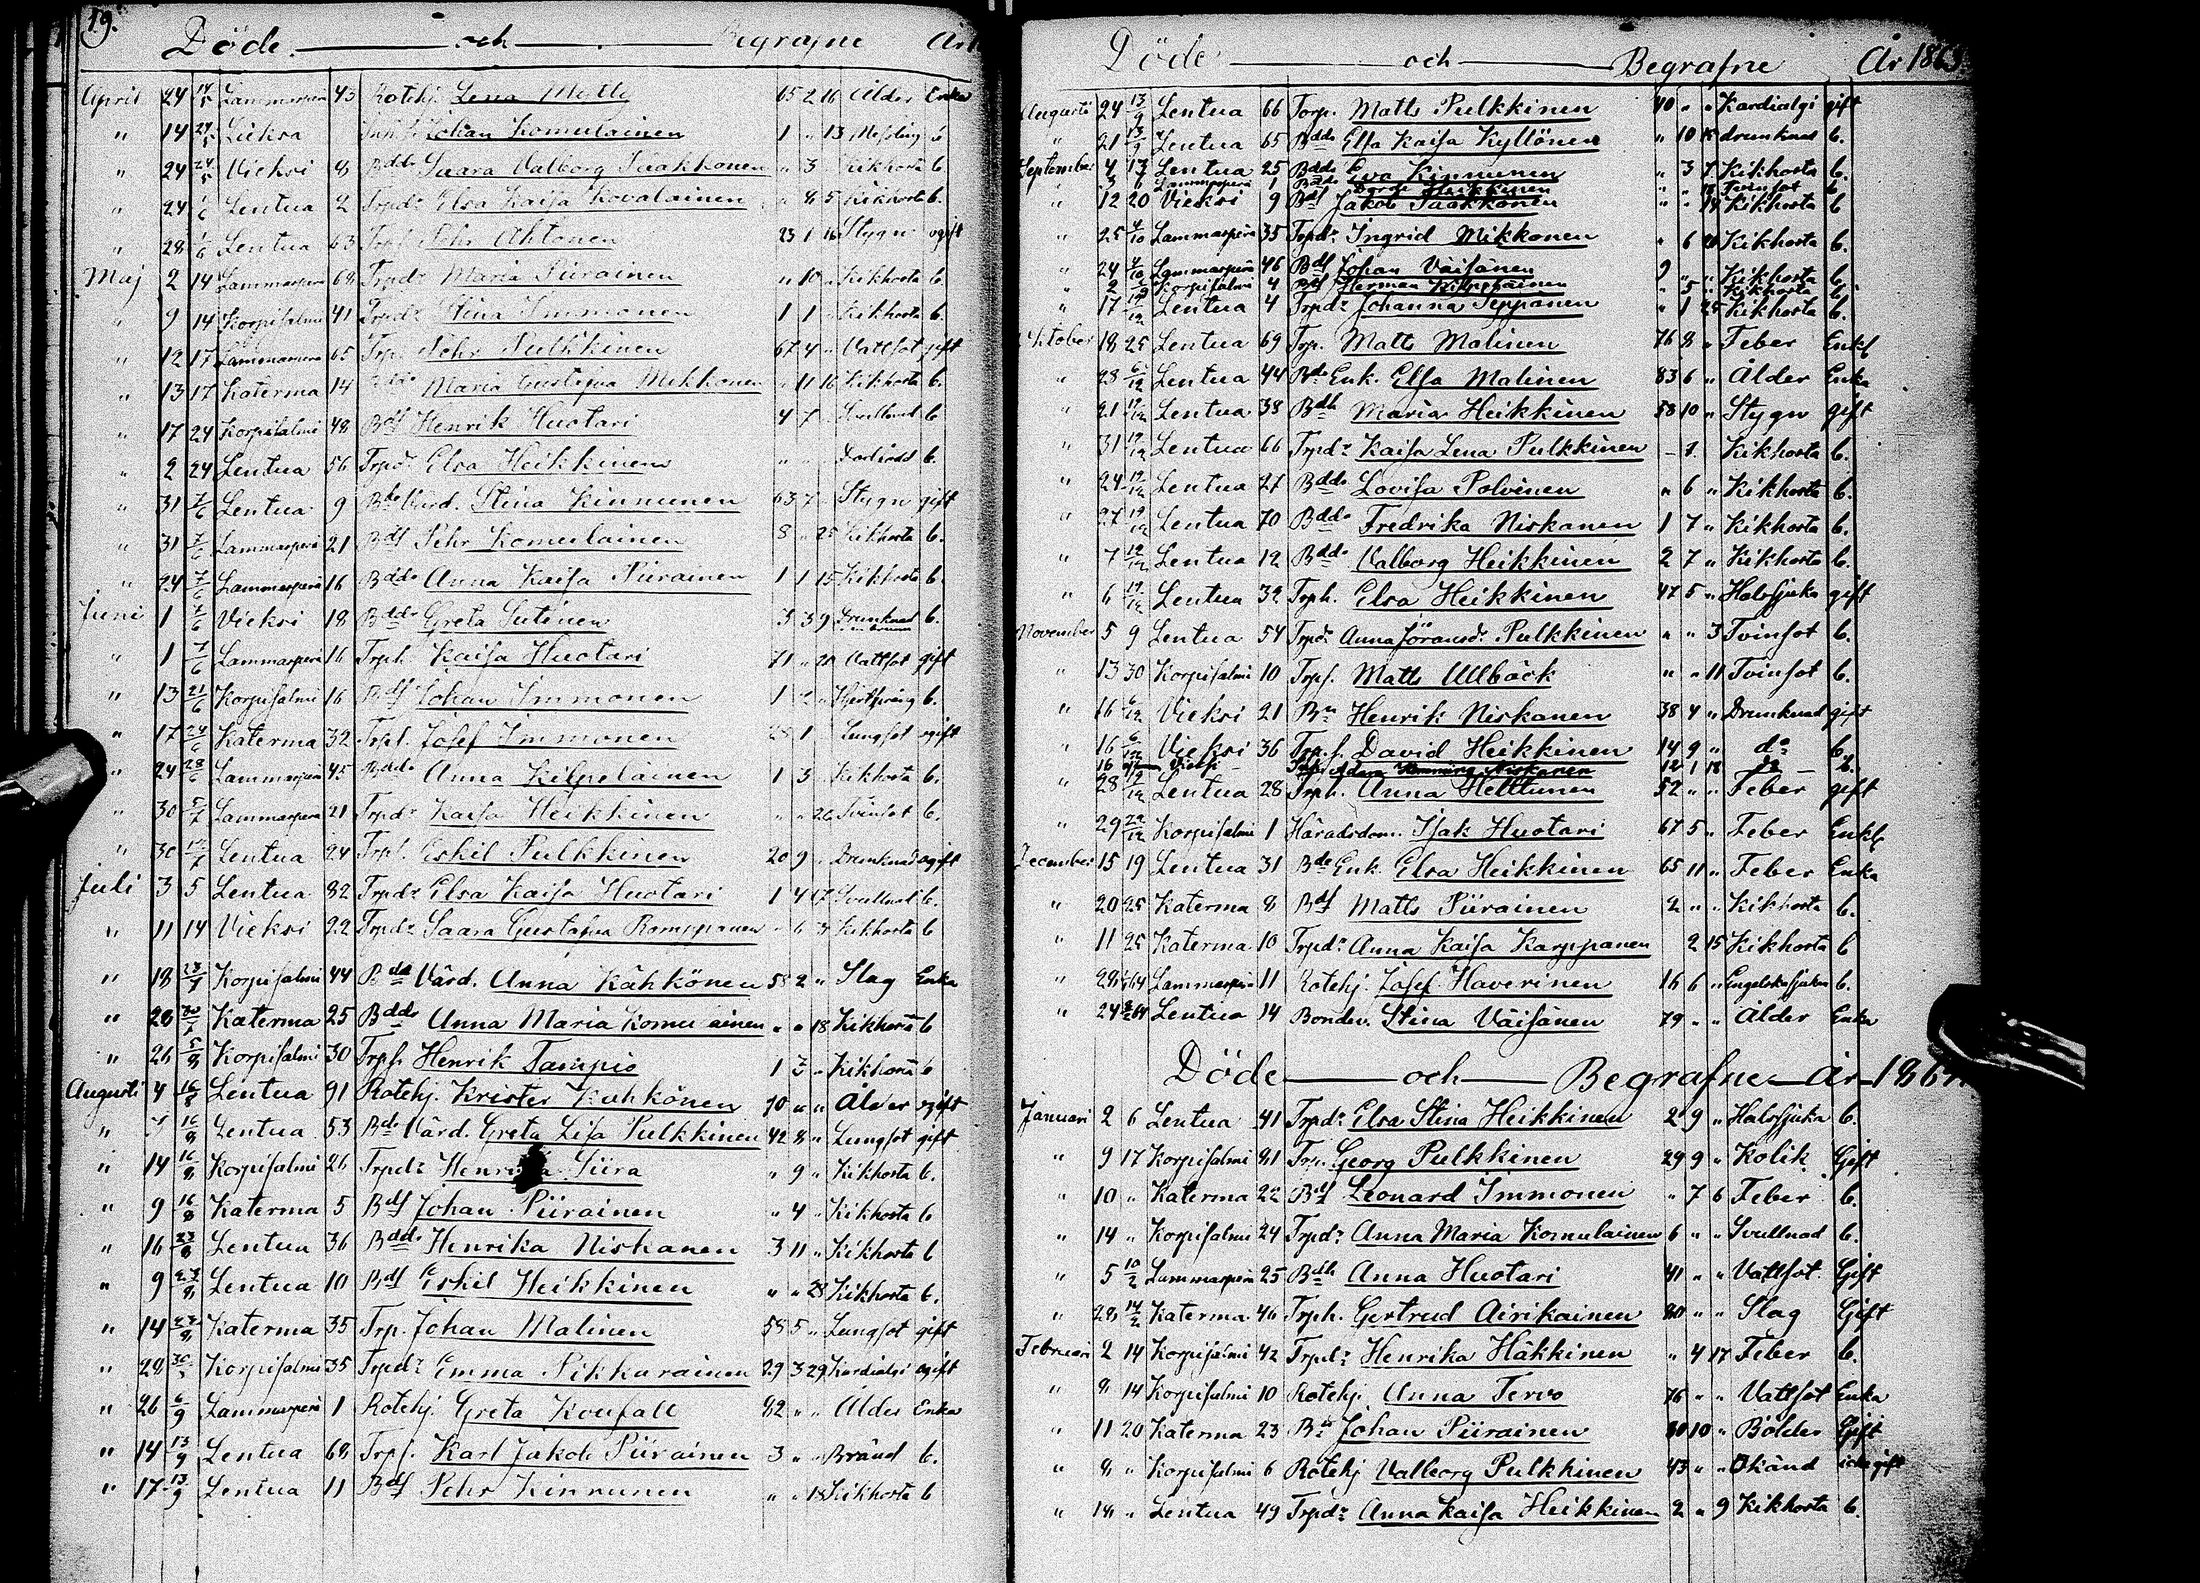 19.
Döde och Begrafne År
April 24 14/5 Lammasperä 43 Rotehj. Lena Molle 65 2 16 Ålder Enka
" 14 24/5 Lieksa Johan Komulainen 1 " 13 Messling b.
" 24 24/5 Vieksi 8 Bdd. Saara Valborg Pääkkönen " 3 " Kikhosta b.
" 24 1/6 Lentua 2 Trpdr Elsa Kaisa Kovalainen " 8 5 Kikhosta b.
" 28 1/6 Lentua 63 Trps. Pehr Ahtonen 23 1 16 Stygn ogift
Maj 2 14 Lammasperä 68 Trpdr Maria Piirainen " 10 " Kikhosta b.
" 9 14 Korpisalmi 41 Trpdr Stina Immonen 1 1 " Kikhosta b.
" 12 17 Lammasperä 65 Trp. Pehr Pulkkinen 67 4 " Vattsot gift
" 13 17 Katerma 14 Bdd. Maria Gustafva Mikkonen " 11 16 Kikhosta b.
" 17 24 Korpisalmi 48 Bds Henrik Huotari 4 7 " Svullnad b.
" 2 24 Lentua 56 Trpdr Elsa Heikkinen " " Dödfödd b.
" 31 7/6 Lentua 9 Bde Värd. Stina Kinnunen 63 7 " Stygn gift
" 31 7/6 Lammasperä 21 Bds Pehr Komulainen 8 " 25 Kikhosta b.
" 24 7/6 Lammasperä 16 Bdd. Anna Kaisa Piirainen 1 1 15 Kikhosta b.
Juni 1 7/6 Vieksi 18 Bdd. Greta Sutinen 3 3 9 Drunknad b.
" 1 7/6 Lammasperä 16 Trph. Kaisa Huotari 71 " 20 Vattsot gift
" 13 21/6 Korpisalmi 16 Bds Johan Immonen 1 2 " b.
" 17 24/6 Katerma 32 Trps. Josef Immonen 28 1 Lungsot ogift
" 24 28/6 Lammasperä 45 Bdd. Anna Kilpeläinen 1 3 " Kikhosta b.
" 30 5/7 Lammasperä 21 Trpdr Kaisa Heikkinen " " 26 Tvinsot b.
" 30 12/7 Lentua 24 Trps. Eskil Pulkkinen 20 9 " Drunknad ogift
Juli 3 5 Lentua 82 Trpdr Elsa Kaisa Huotari 1 4 17 Svullnad b.
" 11 14 Vieksi 22 Trpdr Saara Gustafva Romppanen " 6 Kikhosta b
" 18 23/7 Korpisalmi 44 Bda Värd. Anna Kähkönen 58 2 " Slag Enka
" 20 30/7 Katerma 25 Bdd. Anna Maria Komulainen " " 18 Kikhosta b
" 26 5/8 Korpisalmi 30 Trps. Henrik Tampio 1 3 " Kikhosta b
Augusti 4 16/8 Lentua 91 Rotehj. Krister Kähkönen 70 " " Ålder ogift
" 16/8 Lentua 53 Bde Värd. Greta Lisa Pulkkinen 42 8 " Lungsot gift
" 14 16/8 Korpisalmi 26 Trpdr Henrika Siira " 9 " Kikhosta b.
" 9 16/8 Katerma 5 Bds Johan Piirainen " 4 " Kikhosta b
" 16 23/8 Lentua 36 Bdd. Henrika Niskanen 3 11 " Kikhosta b
" 9 23/8 Lentua 10 Bds Eskil Heikkinen " " 28 Kikhosta b.
" 14 23/8 Katerma 35 Trp. Johan Malinen 58 5 " Lungsot gift
" 28 Korpisalmi 35 Trpdr Emma Pikkarainen 29 3 29 Kardialgi ogift
" 26 6/9 Lammasperä 1 Rotehj. Greta Koufall 82 " " Ålder Enka
" 14 13/9 Lentua 68 Trps. Karl Jakob Piirainen 3 " " Bränd b.
" 17 13/9 Lentua 11 Bds Pehr Kinnunen " " 18 Kikhosta b
Döde och Begrafne År 1863.
Augusti 24 13/9 Lentua 66 Torp. Matts Pulkkinen 40 " " Kardialgi gift
" 21 13/9 Lentua 65 Bdd. Elsa Kaisa Kyllönen " 10 15 drunknad b.
September 4 13 Lentua 25 Bdd. Eva Kinnunen " 3 7 Kikhosta b.
" 3 6 Lammasperä 1 Heikkinen " " Tvinsot b
" 12 20 Vieksi 9 Bds Jakob Pääkkönen " " 14 Kikhosta b
" 25 4/10 Lammasperä 35 Trpdr Ingrid Mikkonen " 6 20 Kikhosta b.
" 24 4/10 Lammasperä 46 Bds Johan Väisänen 9 " " Kikhosta b.
" 2 Korpisalmi 4 Bds Herman Kilpeläinen " 5 " Kikhosta b.
" 17 19/12 Lentua 4 Trpdr Johanna Seppänen " 1 25 Kikhosta b.
Oktober 18 25 Lentua 69 Trp. Matts Malinen 76 8 " Feber Enkl
" 28 6/12 Lentua 44 Bde Enk. Elsa Malinen 83 6 " Ålder Enka
" 21 19/12 Lentua 38 Bdh Maria Heikkinen 58 10 " Stygn gift
" 31 19/12 Lentua 66 Trpdr Kaisa Lena Pulkkinen - 1 Kikhosta b.
" 24 19/12 Lentua 27 Bdd. Lovisa Polvinen " 6 " Kikhosta b.
" 27 19/12 Lentua 70 Bdd. Fredrika Niskanen 1 7 " Kikhosta b.
" 7 19/12 Lentua 12 Bdd. Valborg Heikkinen 2 7 " Kikhosta b.
" 6 19/12 Lentua 32 Trph. Elsa Heikkinen 47 5 " Halssjuka gift
November 5 9 Lentua 54 Trpdr Anna Göransdr Pulkkinen " " 3 Tvinsot b.
" 13 30 Korpisalmi 10 Trps. Matts Ullbäck " " 11 Tvinsot b.
" 16 6/12 Vieksi 21 Bn Henrik Niskanen 38 4 " Drunknad gift
" 16 6/12 Vieksi 36 Trp.s. David Heikkinen 14 9 " do b.
" 16 Vieksi - Adam Niskanen 12 1 18 do - b.
" 28 19/12 Lentua 28 Trph. Anna Helttunen 52 " " Feber gift
" 29 22/12 Korpisalmi 1 Häradsdom. Isak Huotari 67 5 " Feber Enkl
December 15 19 Lentua 31 Bde Enk. Elsa Heikkinen 65 11 " Feber Enka
" 20 25 Katerma 8 Bds Matts Piirainen 2 " " Kikhosta b.
" 11 25 Katerma 10 Trpdr Anna Kaisa Karppanen 2 15 Kikhosta b
" 28 1/1 64 Lammasperä 11 Rotehj. Josef Haverinen 16 6 " Engelska sjukan b.
" 24 2/2 64 Lentua 14 Bonden. Stina Väisänen 79 " " Ålder Enka
Döde och Begrafne År 1864.
Januari 2 6 Lentua 41 Trpdr Elsa Stina Heikkinen 2 9 " Halssjuka b.
" 9 17 Korpisalmi 81 Trp. Georg Pulkkinen 29 9 " Kolik Gift
" 10 " Katerma 22 Bds Leonard Immonen " 7 6 Feber b.
" 14 " Korpisalmi 24 Trpdr Anna Maria Komulainen 6 " " Svullnad b.
" 5 10/2 Lammasperä 25 Bdh Anna Huotari 41 " " Vattsot Gift
" 28 14/2 Katerma 46 Trph. Gertrud Airikainen 80 " " Slag Gift
Februari 2 14 Korpisalmi 42 Trpdr Henrika Häkkinen " 4 17 Feber b.
" 8 14 Korpisalmi 10 Rotehj Anna Tervo 76 " " Vattsot Enka
" 11 20 Katerma 23 Bn Johan Piirainen 80 10 " Bölder Gift
" 8 " Korpisalmi 6 Rotehj Valborg Pulkkinen 43 " " Okänd icke gift
" 18 " Lentua 49 Trpdr Anna Kaisa Heikkinen 2 " 9 Kikhosta b.